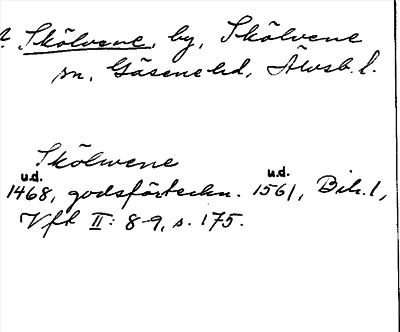 Skölvene, by, Skölvene
sn, Gäsene hd, Älvsb. l.
Skölwene
u.d. u.d.
1468, godsförteckn. 1561, Bih. 1,
Vft II: 8-9, s. 175.